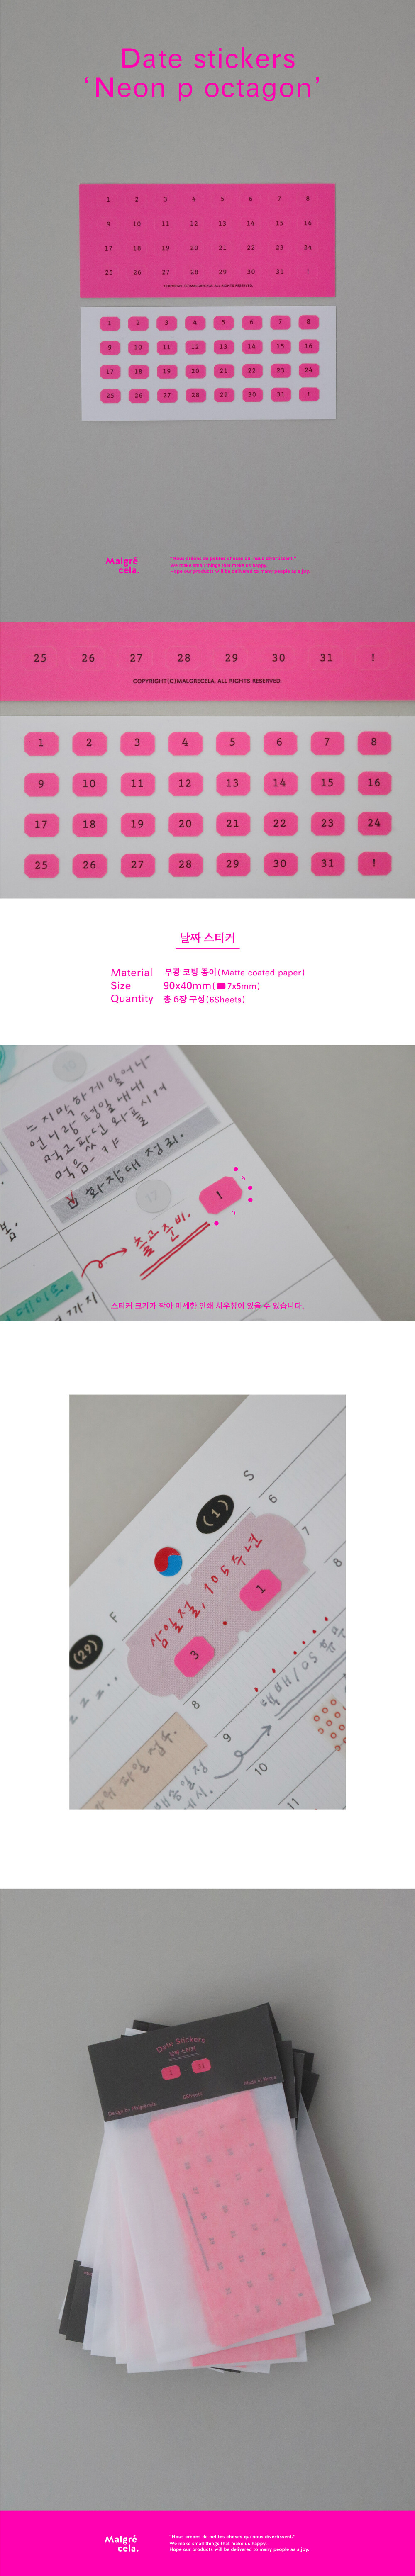 Date stickers
‘Neon p octagon’
1 2 3 4 5 6 7 8
9 10 11 12 13 14 15 16
17 18 19 20 21 22 23 24
25 26 27 28 29 30 31 !
COPYRIGHT(C)MALGRECELA. ALL RIGHTS RESERVED.
1 2 3 4 5 6 7 8
9 10 11 12 13 14 15 16
17 18 19 20 21 22 23 24
25 26 27 28 29 30 31 !
Malgré
cela.
"Nous créons de petites choses qui nous divertissent."
We make small things that make us happy.
Hope our products will be delivered to many people as a joy.
25 26 27 28 29 30 31 !
COPYRIGHT(C)MALGRECELA. ALL RIGHTS RESERVED.
1 2 3 4 5 6 7 8
9 10 11 12 13 14 15 16
17 18 19 20 21 22 23 24
25 26 27 28 29 30 31 !
날짜 스티커
Material 무광 코팅 종이(Matte coated paper)
Size 90x40mm( 7x5mm)
Quantity 총 6장 구성(6Sheets)
느지막하게 일어나
언니랑 평일 내내
먹고팠던 와플 시켜
먹음-
화장대 정리.
17
!
5
7
출고 준비.
스티커 크기가 작아 미세한 인쇄 치우침이 있을 수 있습니다.
S
(1)
6
7
8
F
(29)
삼일절, 105주년
3 . 1
zzz..
8
9
10
11
Date Stickers
날짜 스티커
1 - 31
6Sheets
Design by Malgrécela
Made in Korea
Malgré
cela.
"Nous créons de petites choses qui nous divertissent."
We make small things that make us happy.
Hope our products will be delivered to many people as a joy.